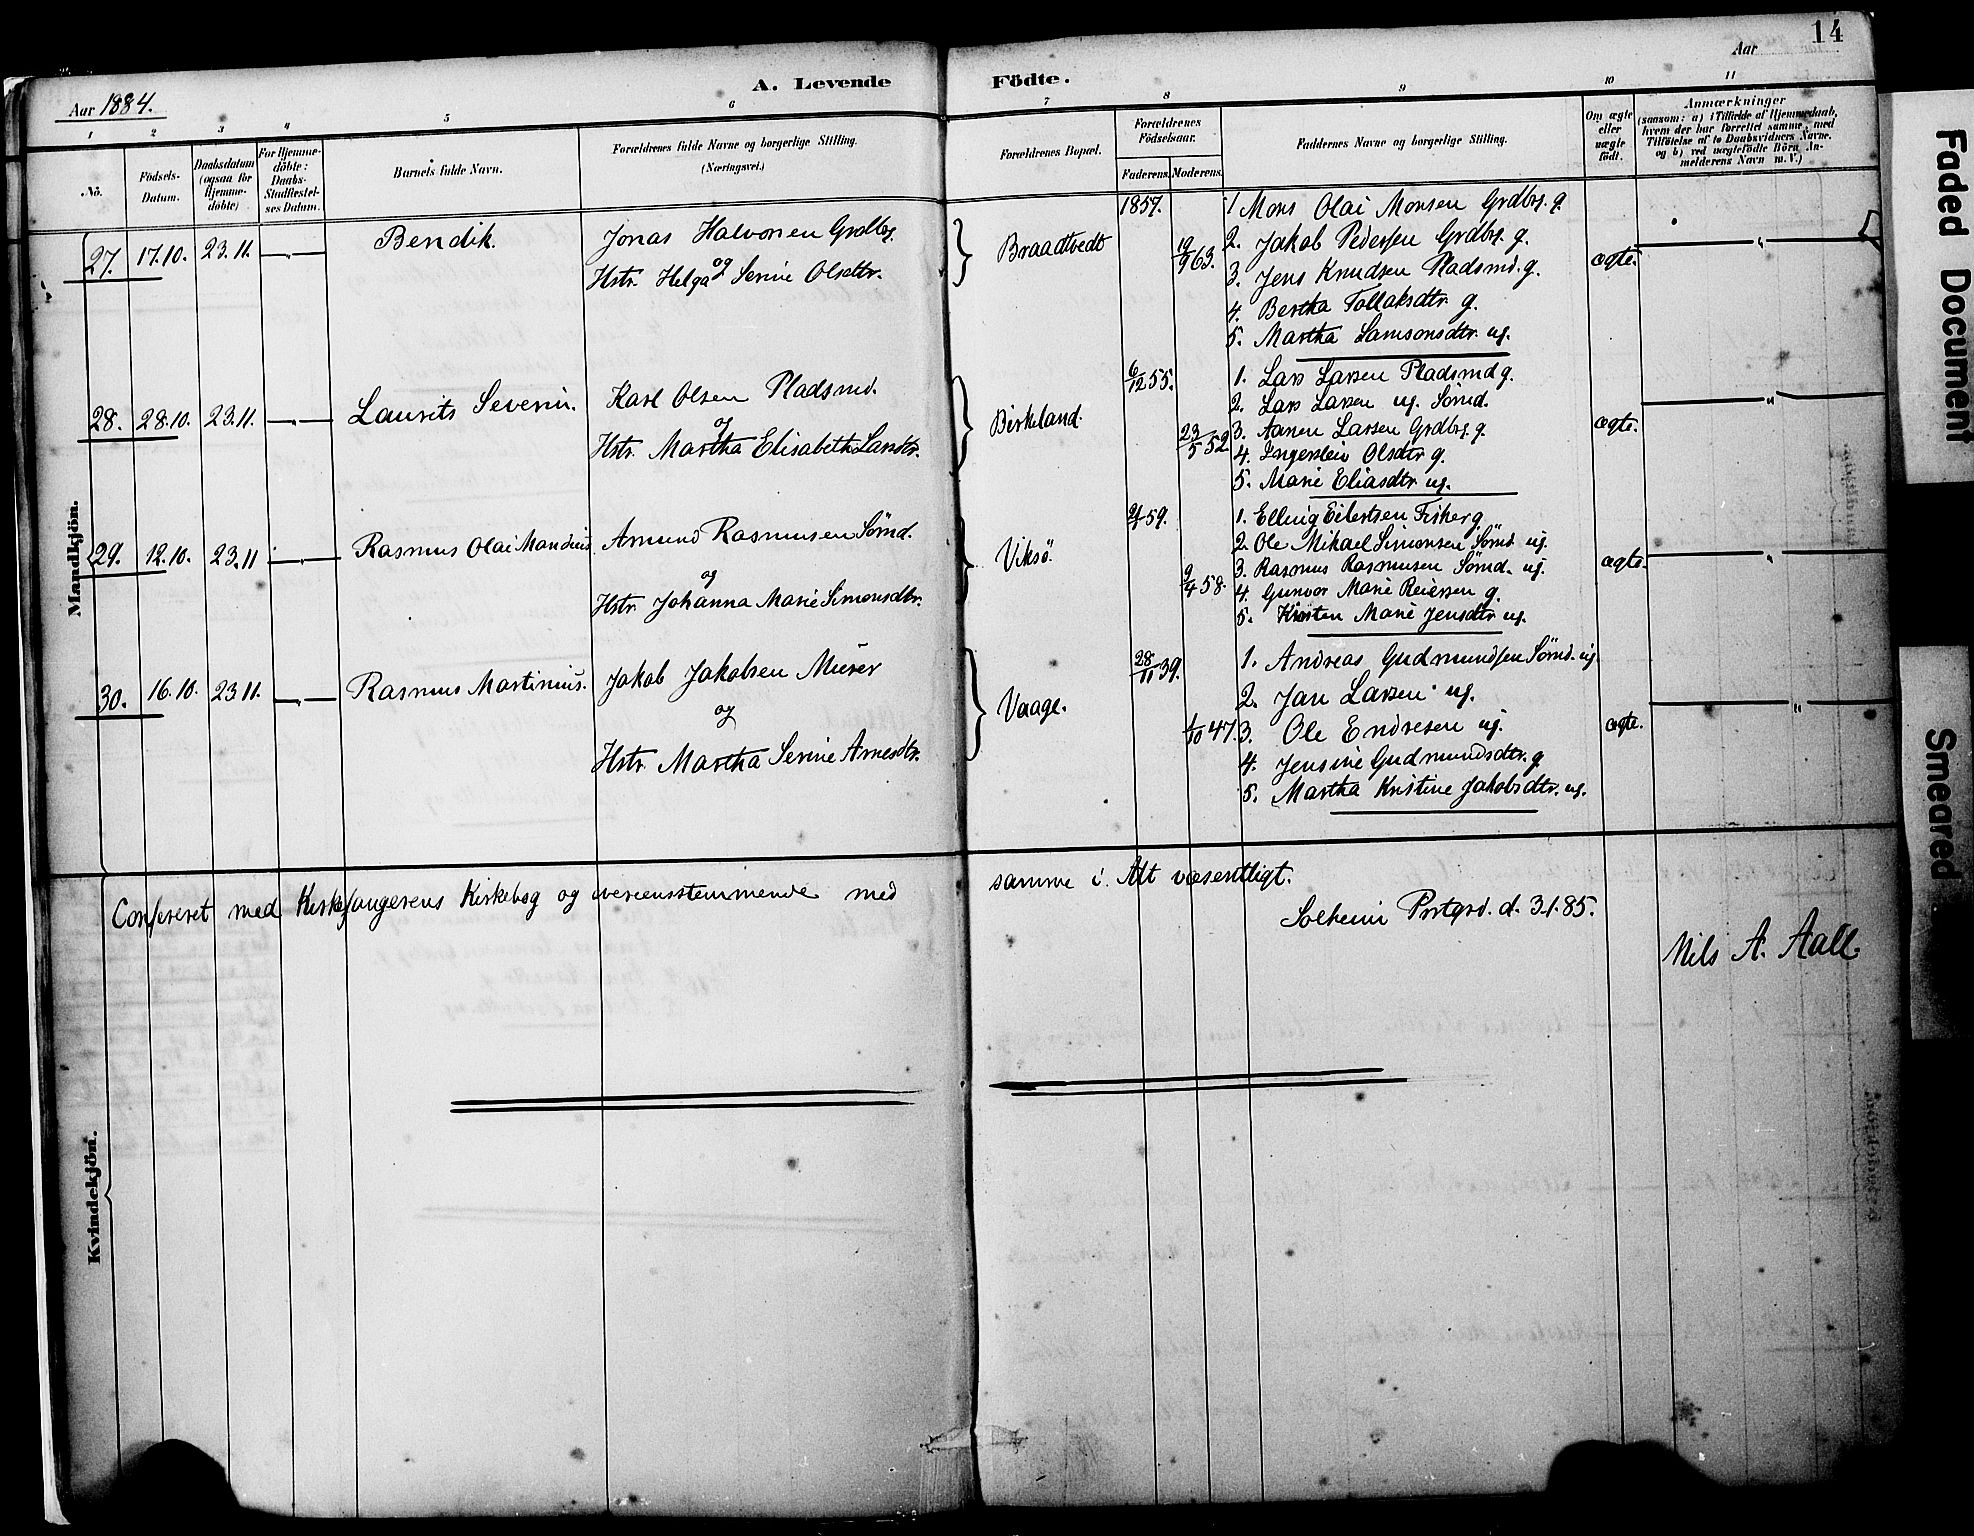 14
A. Levende Födte.
Aar 1884.
Aar
1 2 3 4 5 6 7 8 9 10 11
No.
Födsels-Datum.
Daabsdatum (ogsaa for Hjemmedöbte)
For Hjemmedöbte: Daabs-Stadfæstelses Datum.
Barnets fulde Navn.
Forældrenes fulde Navne og borgerlige Stilling.
(Næringsvei.)
Forældrenes Bopæl.
Forældrenes Födselsaar.
Faderens. Moderens.
Faddernes Navne og borgerlige Stilling.
Om ægte eller uægte födt.
Anmærkninger
(saasom: a) i Tilfælde af Hjemmedaab, hvem der har forrettet samme, med Tilföielse af to Daabsvidners Navne, og b) ved uægtefödte Börn Anmelderens Navn m. V.)
Mandkjön.
27. 17.10. 23.11. — " — Bendik.
Jonas Halvorsen Grdbr.
og
Hstr. Helga Serine Olsdtr.
Braadtvedt
1857.
19/9 63.
1 Mons Olai Monsen Grdbr. g.
2. Jakob Pedersen Grdbr. g.
3. Jens Knudsen Pladsmd. g.
4. Bertha Tollaksdtr. g.
5. Martha Samsonsdtr. ug.
ægte.
"
28. 28.10. 23.11. — " — Laurits Severin.
Karl Olsen Pladsmd.
og
Hstr. Martha Elisabeth Larsdtr.
Birkeland.
6/12 55.
23/5 52.
1. Lars Larsen Pladsmd g.
2. Lars Larsen ug. Sömd.
3. Aanen Larsen Grdbr. g.
4. Ingerlein Olsdtr g.
5. Marie Eliasdtr ug.
ægte.
"
29. 12.10. 23.11 — " — Rasmus Olai Mandius.
Amund Rasmussen Sömd.
og
Hstr. Johanna Marie Simonsdtr.
Viksö.
59.
9/4 58.
1. Elling Eilertsen Fisker g.
2. Ole Mikael Simonsen Sömd ug.
3. Rasmus Rasmusen Sömd. ug.
4. Gunvor Marie Reiersen g.
5. Kirsten Marie Jensdtr ug.
ægte.
"
30. 16.10. 23.11. — " — Rasmus Martinius.
Jakob Jakobsen Murer
og
Hstr. Martha Serine Arnesdtr.
Vaage.
28/11 39.
1/10 47.
1. Andreas Gudmundsen Sömd. ug.
2. Jan Larsen ug.
3. Ole Endresen ug.
4. Jensine Gudmundsdtr. g
5. Martha Kristine Jakobsdtr. ug.
ægte.
"
Confereret med Kirkesangerens Kirkebog og overensstemmende med samme i Alt væsentligt.
Solheim Prstgrd. d. 3.1.85.
Nils A. Aall.
Kvindekjön.
Faded Document
Smeared